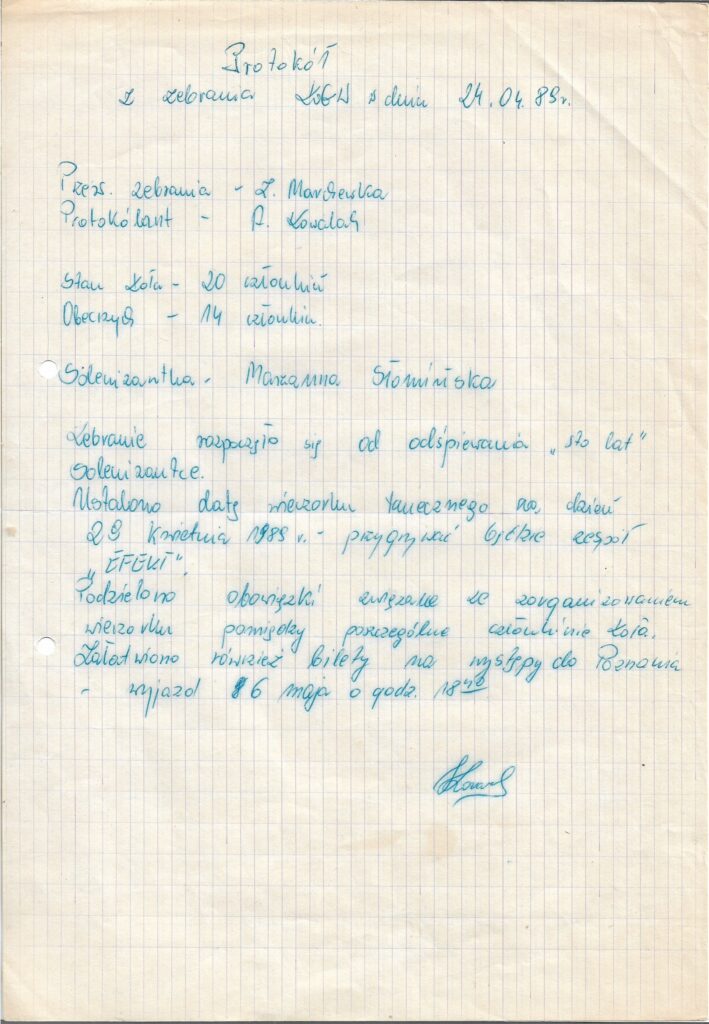 Protokół
z zebrania KGW w dniu 24.04.89r.
Przew. zebrania - Z. Marchewka
Protokólant - A. Kowalak
Stan koła - 20 członkiń
Obecnych - 14 członkiń.
Solenizantka - Marzanna Słomińska
Zebranie rozpoczęło się od odśpiewania „sto lat"
solenizantce.
Ustalono datę wieczorku tanecznego na dzień
29 kwietnia 1989 r. - przygrywać będzie zespół
„EFEKT".
Podzielono obowiązki związane ze zorganizowaniem
wieczorku pomiędzy poszczególne członkinie koła.
Załatwiono również bilety na występy do Poznania
- wyjazd 6 maja o godz.